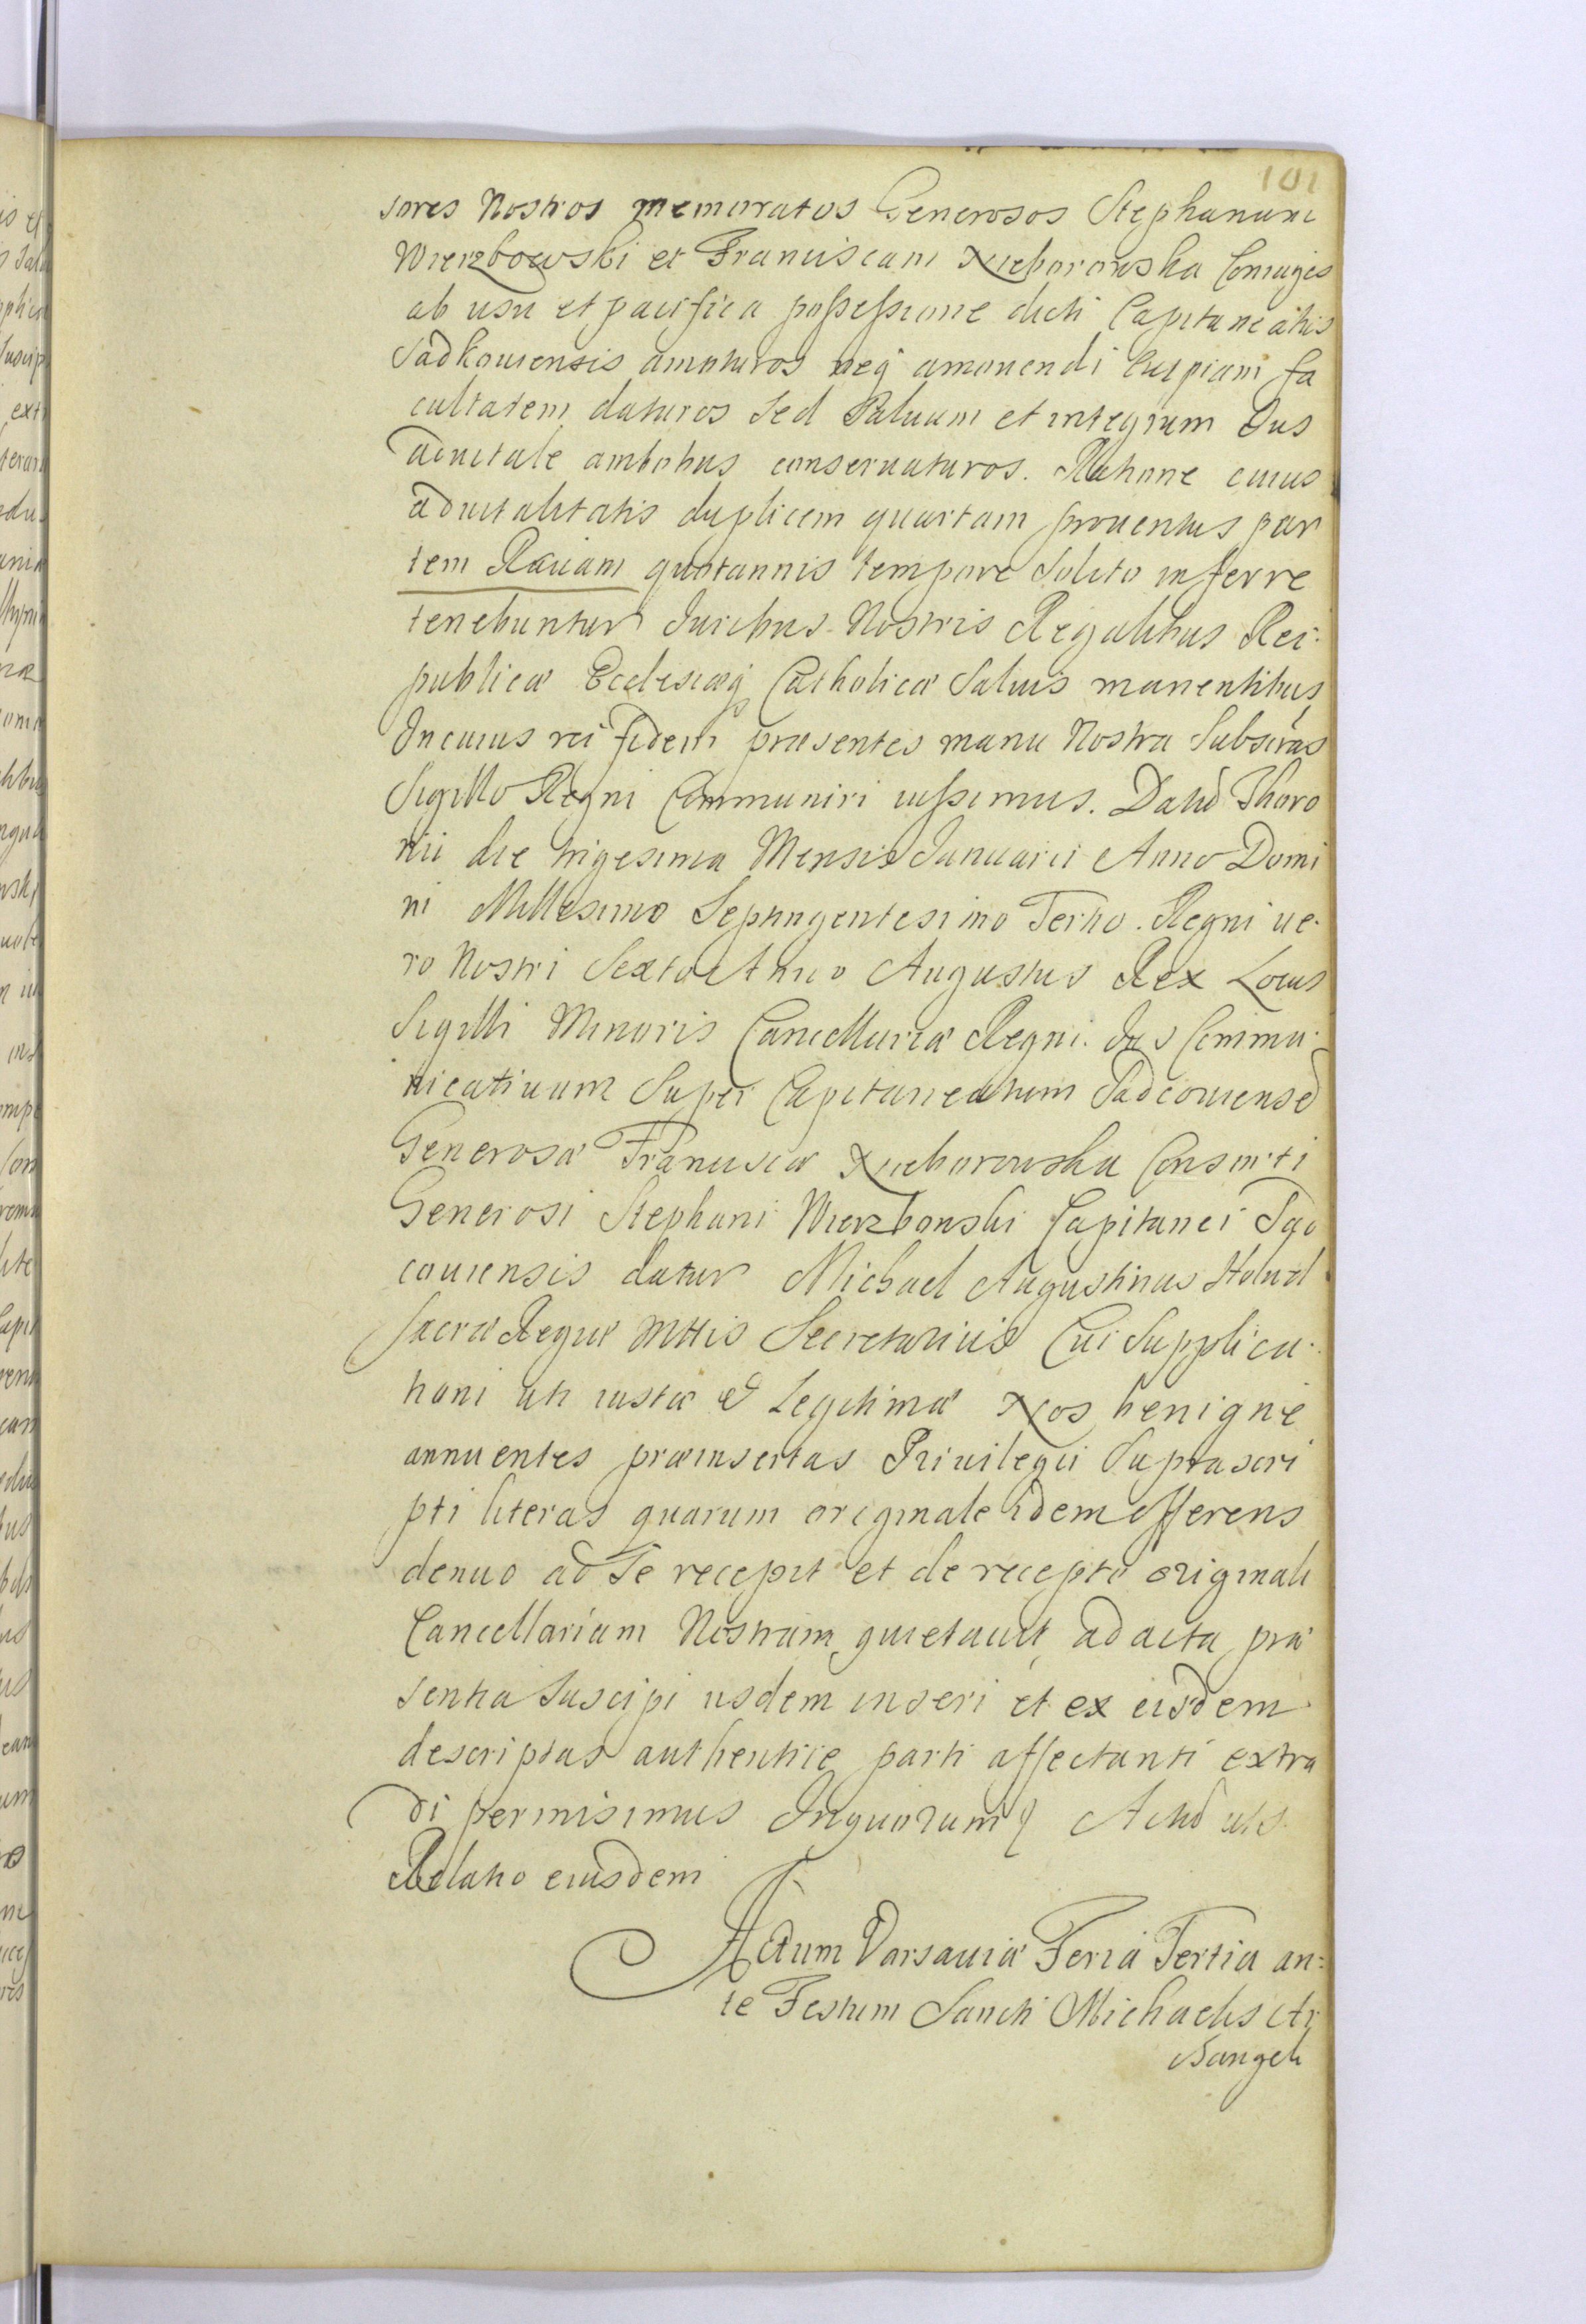 101
sores Nostros memoratos Generosos Stephanum
Wierzbowski et Franciscam Nieborowska Coniuges
ab usu et pacifica possessione dicti Capitaneatus
Sadkouiensis amoturos neq amouendi cuipiam fa
cultatem daturos sed Saluum et integrum Ius
aduitale ambobus conseruaturos. Ratione cuius
aduitalitatis duplicem quartam prouentus par
tem Rauam quotannis tempore solito inferre
tenebuntur Iuribus Nostris Regalibus Rei
publicæ Ecclesiæq Catholicæ Saluis manentibus
In cuius rei fidem præsentes manu Nostra Subscrās
Sigillo Regni Communiri iussimus. Datū Thoro
nii die trigesima Mensis Januarii Anno Domi
ni Millesimo Septingentesimo Tertio. Regni ue-
ro Nostri Sexto Anno Augustus Rex Locus
Sigilli Minoris Cancellariæ Regni. Jus Commu-
nicatiuum Super Capitaneatum Sadcouiensē
Generosæ Franciscæ Nieborowska Consorti
Generosi Stephani Wierzbowski Capitanei Sad
couiensis datur Michael Augustinus Holuel
Sacræ Regiæ Mttis Secretarius Cui Supplica-
tioni uti iustæ & Legitimæ Nos benigne
annuentes præinsertas Priuilegii Suprascri
pti literas quarum originale idem offerens
denuo ad Se recepit et de recepto originali
Cancellariam Nostram quietauit, ad acta præ
sentia Suscipi iisdem inseri et ex eisdem
descriptas authentice parti affectanti extra
di permisimus Inquorum Actū uts.
Relatio eiusdem
Actum Varsauiæ Feria Tertia an=
te Festum Sancti Michaelis Ar
changeli